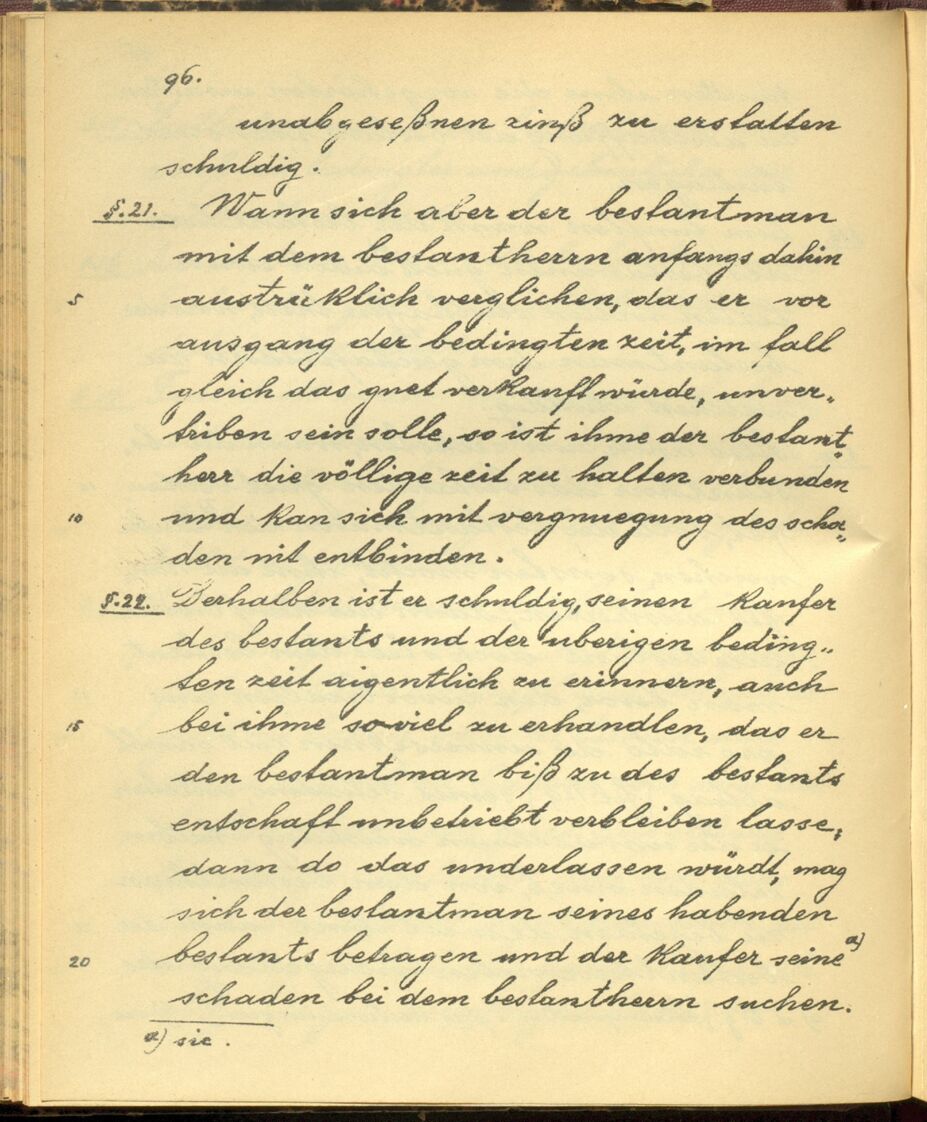 96.
unabgeseßnen zinß zu erstatten
schuldig.
§.21. Wann sich aber der bestantman
mit dem bestantherrn anfangs dahin
5 austrüklich verglichen, das er vor
ausgang der bedingten zeit, im fall
gleich das guet verkauft würde, unver„
triben sein solle, so ist ihme der bestant„
herr die völlige zeit zu halten verbunden
10 und kan sich mit vergnuegung des scha„
den nit entbinden.
§.22. Derhalben ist er schuldig, seinen kaufer
des bestants und der uberigen beding„
ten zeit aigentlich zu erinnern, auch
15 bei ihme soviel zu erhandlen, das er
den bestantman biß zu des bestants
entschaft unbetriebt verbleiben lasse,
dann do das underlassen würdt, mag
sich der bestantman seines habenden
20 bestants betragen und der kaufer seine a)
schaden bei dem bestantherrn suchen.
a) sic.